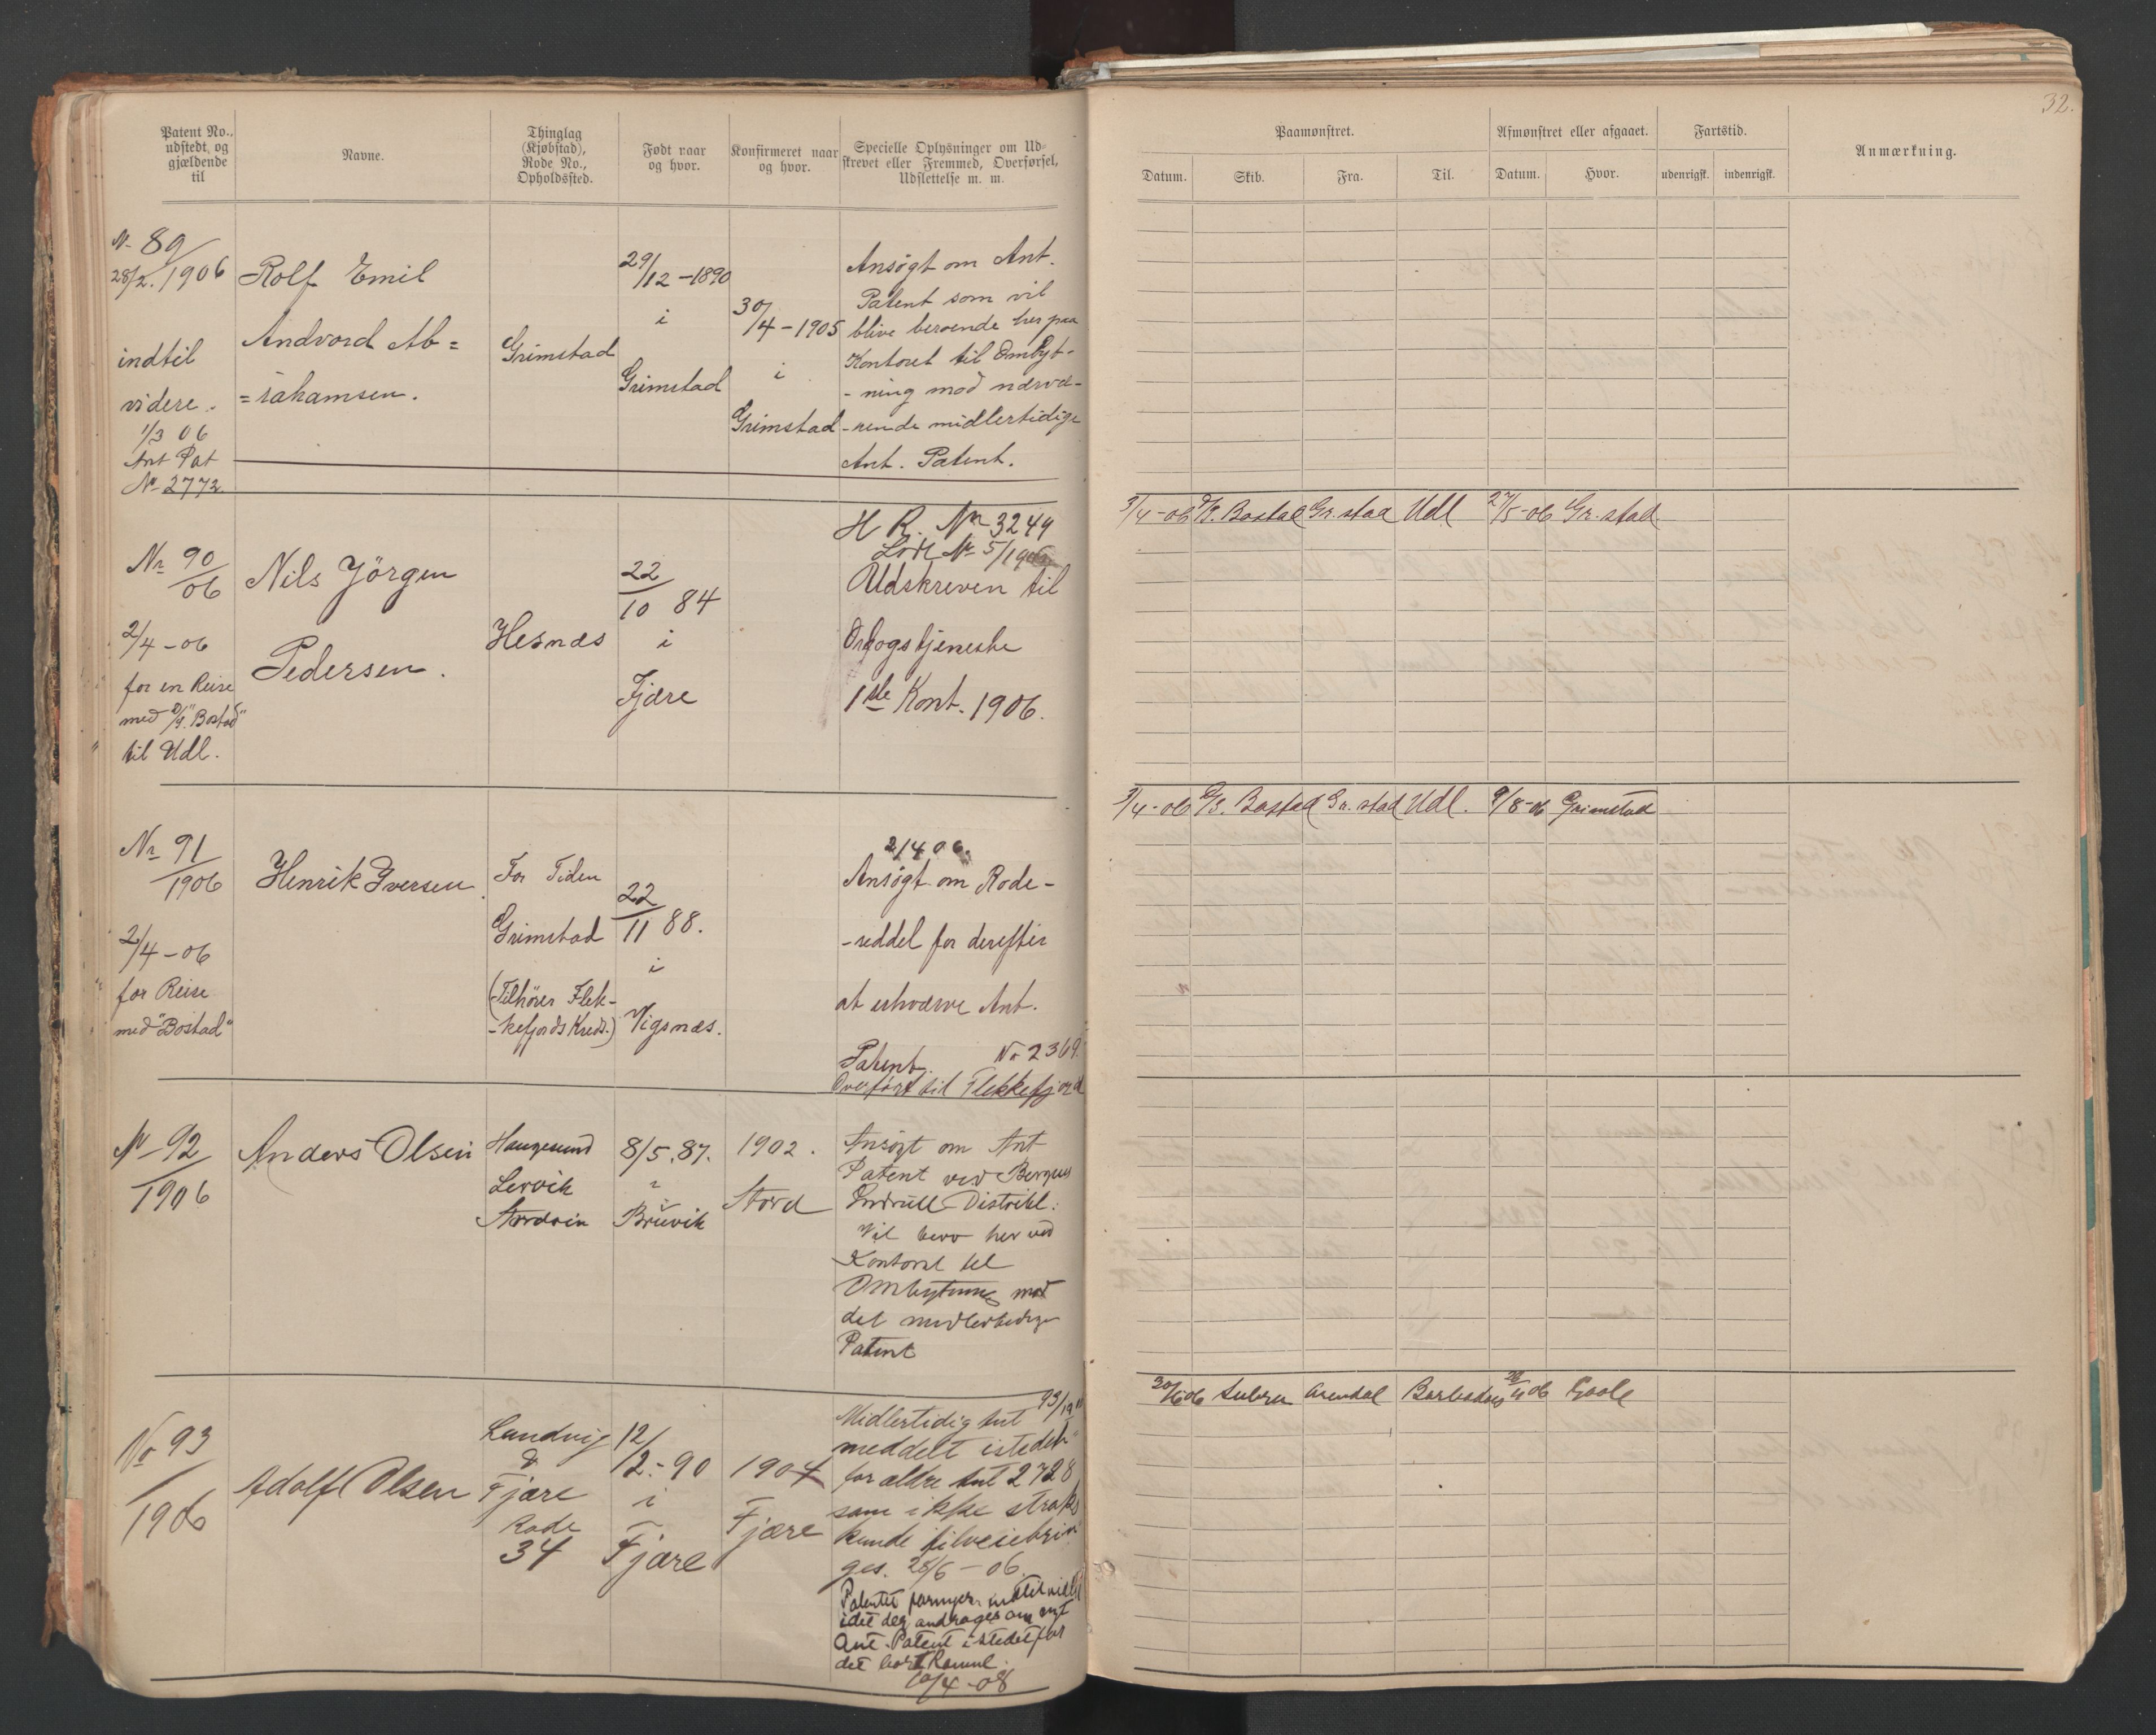 32.
Patent No., udstedt, og gjældende til
Navne.
Thinglag (Kjøbstad), Rode No., Opholdssted.
Født naar og hvor.
Konfirmeret naar og hvor.
Specielle Oplysninger om Udskrevet eller Fremmed, Overførsel, Udslettelse m. m.
Paamønstret.
Datum.
Skib.
Fra.
Til.
Afmønstret eller afgaaet.
Datum.
Hvor.
Fartstid.
udenrigsk.
indenrigsk.
Anmærkning.
N. 89/
28/2. 1906
indtil
videre.
1/3 06
Ant Pat
No 2772.
Rolf Emil
Andvord Ab=
=rahamsen.
Grimstad
29/12 - 1890
i
Grimstad
30/4 - 1905
i
Grimstad
Ansögt om Ant.
Patent som vil
blive beroende her paa
Kontoret til Ombyt-
-ning mod nærvæ-
-rende midlertidige
Ant. Patent.
Nr 90/06
2/4 - 06
for en Reise
med D/S. "Bostad"
til Udl.
Nils Jörgen
Pedersen.
Hesnæs
22/10 84
i
Fjære
H R. Nr 3249
Lod No 5/1906
Udskreven til
Orlogstjeneste
1ste Kont. 1906.
3/4-06 D/S. Bostad Gr.stad Udl 27/5-06 Gr.stad
Nr 91/1906
2/4 - 06
for Reise
med "Bostad"
Henrik Iversen.
For Tiden
Grimstad
(Tilhörer Flek-
-kefjords Kreds.)
22/11 88.
i
Vigsnæs.
2/4 06.
Ansögt om Rode-
-seddel for derefter
at erhværve Ant.
Patent. No 2369.
Overført til Flekkefjord
3/4-06 D/S. Bostad Gr. stad Udl. 9/8-06 Grimstad
No 92/1906
Anders Olsen
Haugesund
Lervik
8/5.87.
i
Bruvik
1902.
Stord
Ansögt om Ant
Patent ved Bergens
Indrull. Distrikt.
Vil bero her ved
Kontoret til
Ombytning mod
det midlertidige
Patent
No 93/1906
Adolf Olsen
Landvig
&
Fjære
Rode
34
12/12.-90
i
Fjære
1904
Fjære
Midlertidig Ant 93/19
meddelt istedet
for ældre Ant 2728
som ikke straks
kunde tilveiebrin
ges. 28/6 - 06.
Patentet fornyer indtil videre
idet der andrages om nyt
Ant. Patent istedetfor
det bortkomne.
10/4 -08
30/6 06 Arendal Barbados 06 Goole